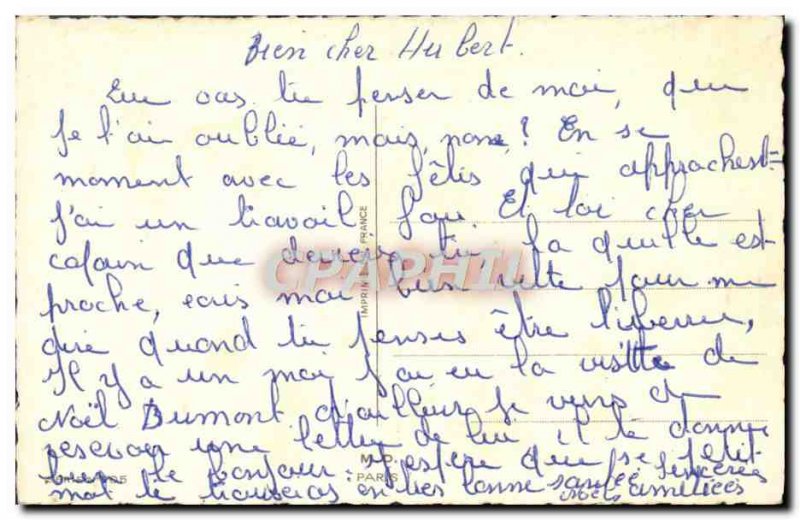 Bien cher Hubert.
tu penser de moi, que
je t'ai oublié, mais, non ? En se
moment avec les fêtis qui approchest
j'ai un travail fou. Et toi cher
copain que deviens tu. la quille est
proche, ecris moi bien vitte pour me
dire quand tu penses être liberer,
Il y a un moi j'ai eu la visitte de
Noël Dumont d'ailleurs je viens de
resevoir une lettre de lui il te donne
bien le bonjour. J'espère que se petit
mot te trouveras en tres bonne santée sincères
amitiées
IMPRIM FRANCE
M.D.
PARIS
CPAPHIL